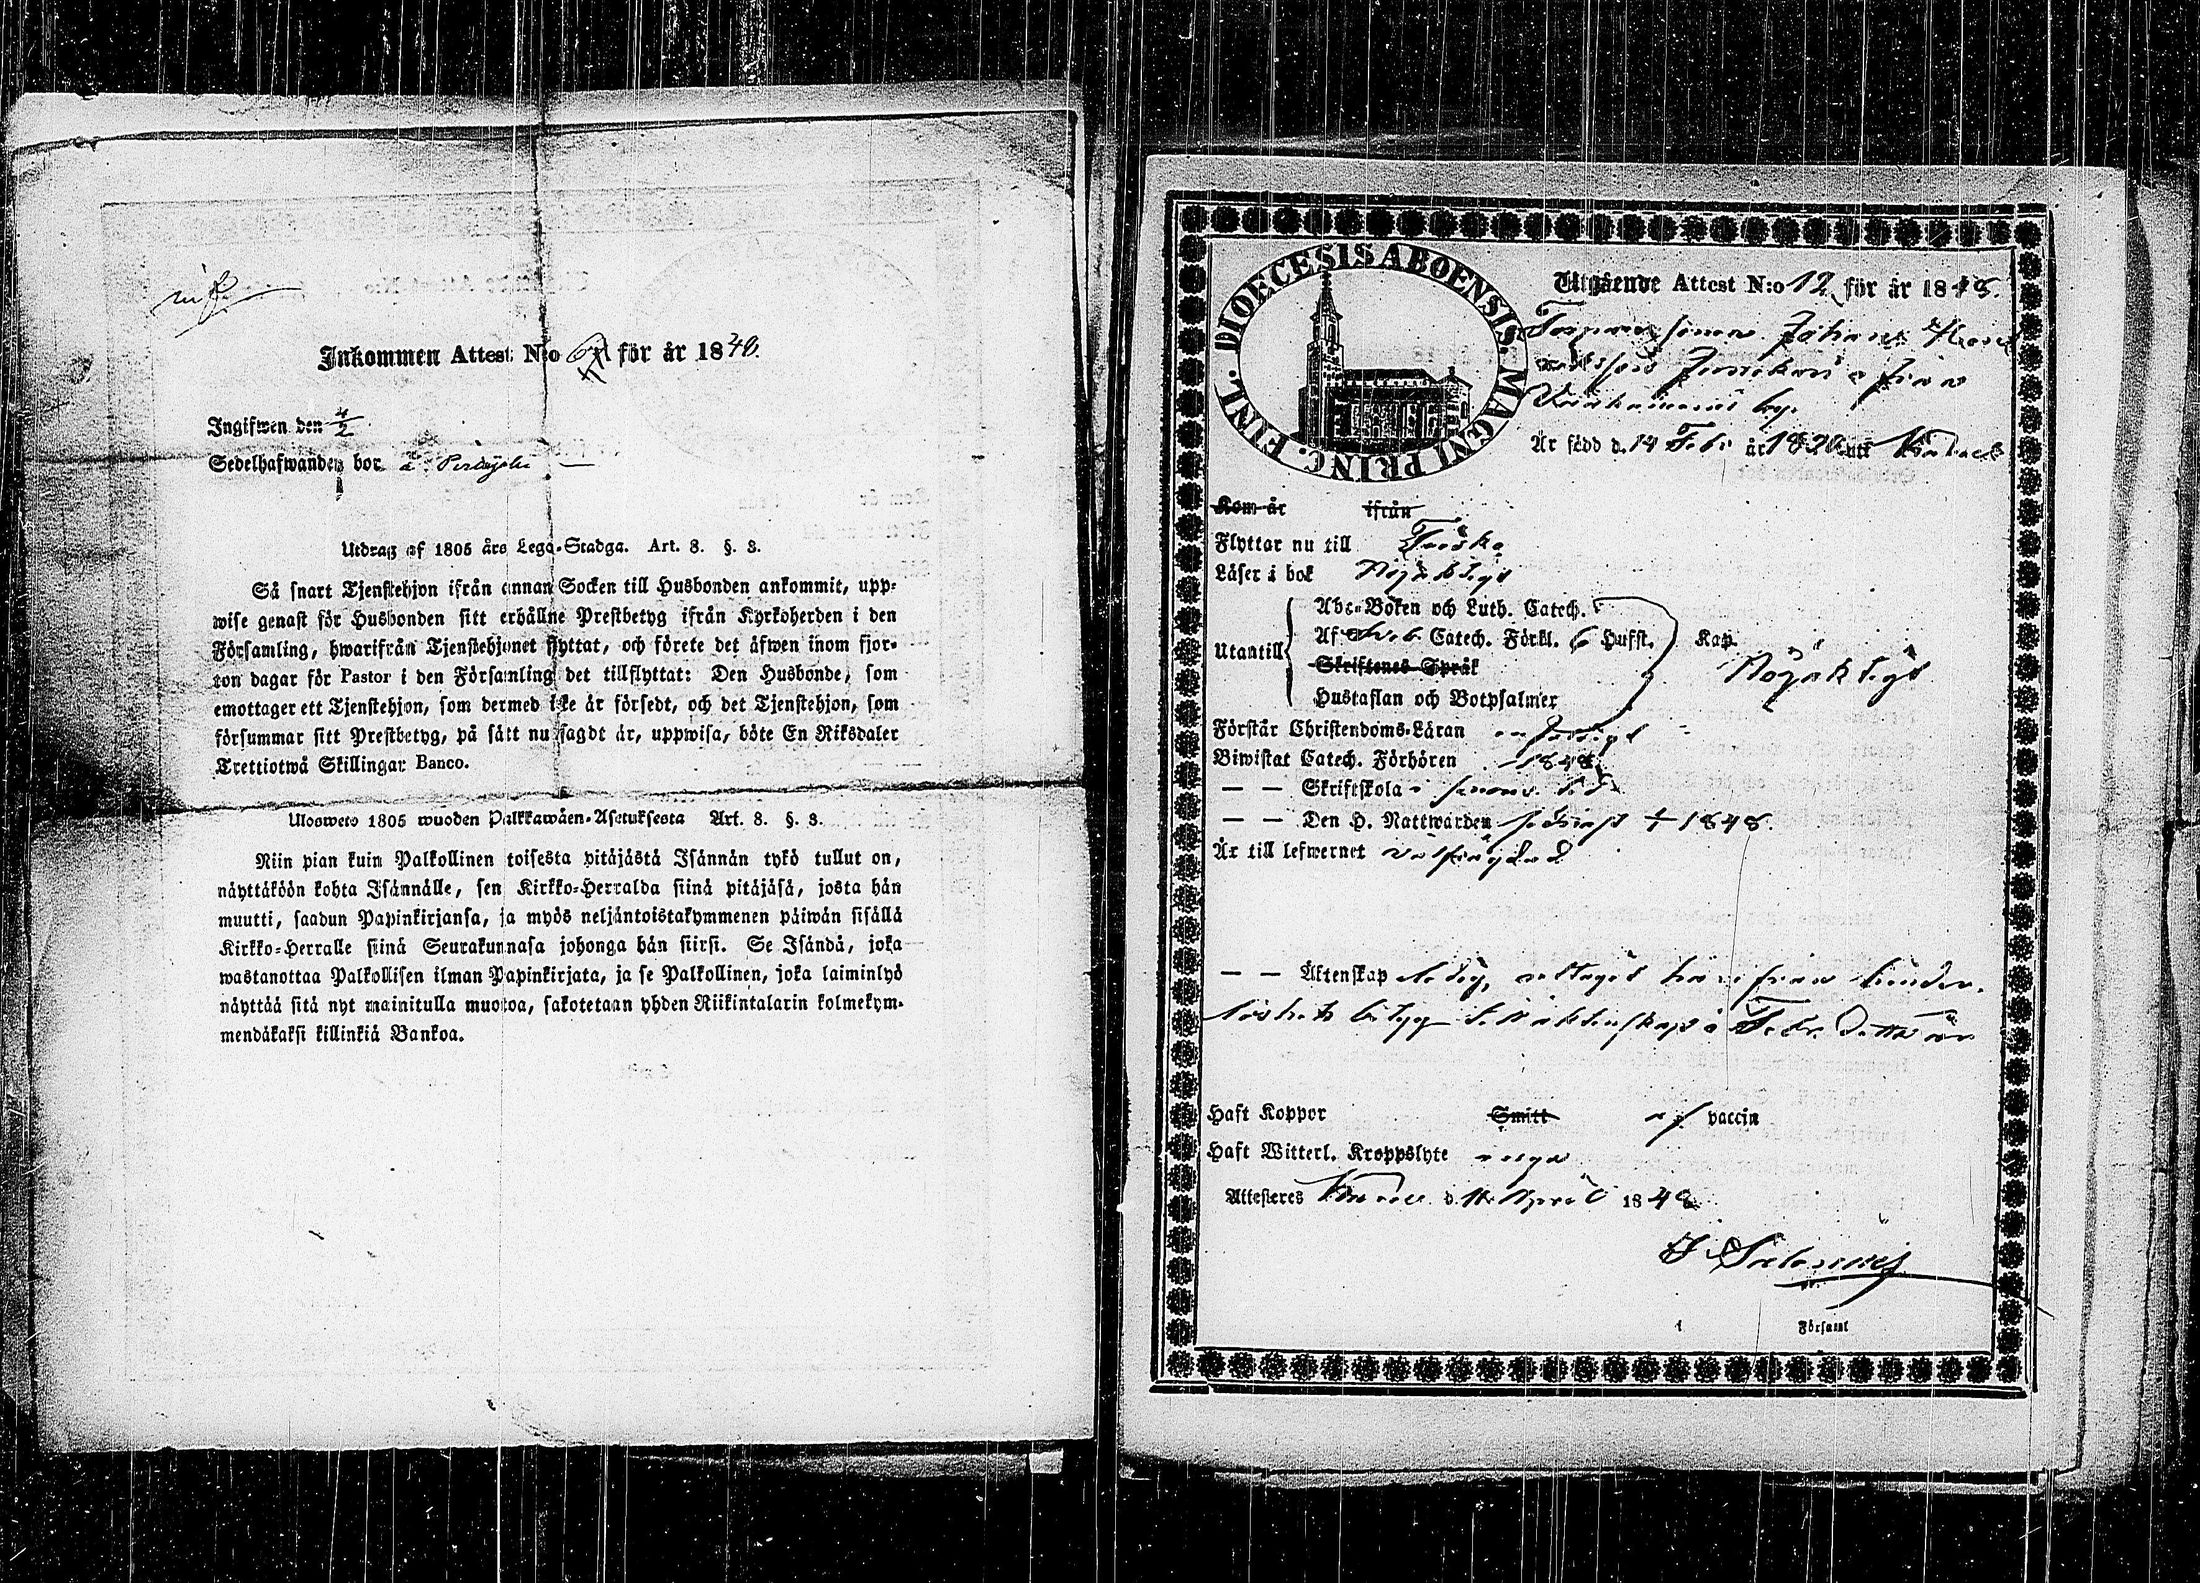 Inkommen Attest N:o för år 1840.
Ingifwen den 4/2
Sedelhafwanden bor
Utdrag af 1805 års Lego-Stadga. Art. 8. §. 3.
Så snart Tjenstehjon ifrån annan Socken till Husbonden ankommit, upp-
wise genast för Husbonden sitt erhållne Prestbetyg ifrån Kyrkoherden i den
Församling, hwarifrån Tjenstehjonet flyttat, och förete det äfwen inom fjor-
ton dagar för Pastor i den Församling det tillflyttat: Den Husbonde, som
emottager ett Tjenstehjon, som dermed icke är försedt, och det Tjenstehjon, som
försummar sitt Prestbetyg, på sätt nu sagdt är, uppwisa, böte En Riksdaler
Trettiotwå Skillingar Banco.
Ulosweto 1805 wuoden Palkkawäen-Asetuksesta Art. 8. §. 3.
Niin pian kuin Palkollinen toisesta pitäjästä Isännän tykö tullut on,
näyttäköön kohta Isännälle, sen Kirkko-Herralda siinä pitäjäsä, josta hän
muutti, saadun Papinkirjansa, ja myös neljäntoistakymmenen päiwän sisällä
Kirkko-Herralle siinä Seurakunnasa johonga hän siirsi. Se Isändä, joka
wastanottaa Palkollisen ilman Papinkirjata, ja se Palkollinen, joka laiminlyö
näyttää sitä nyt mainitulla muotoa, sakotetaan yhden Riikintalarin kolmekym-
mendäkaksi killinkiä Bankoa.
DIOECESIS ABOENSIS. MAGNI PRINC. FINL.
Utgående Attest N:o 12 för år 1848.
Johan
by
Är född d. 14 Feb. år 1820 uti
Kom år ifrån
Flyttar nu till
Läser i bok Nöjaktigt
Utantill
Abc-Boken och Luth. Catech.
Af Sveb. Catech. Förkl. 6 Hufst. Kap
Skriftenes Språk
Hustaflan och Botpsalmer
Nöjaktigt
Förstår Christendoms-Läran
Biwistat Catech. Förhören 1848
— — Skriftskola
— — Den H. Nattwarden 1848.
Är till lefwernet välfrägdad
— — Äktenskap ledig, uttaget härifrån hinder-
löshets betyg till äktenskap i Febr. detta år
Haft Koppor Smitt af vaccin
Haft Witterl. Kroppslyte
Attesteras d. April 1848
i Församl